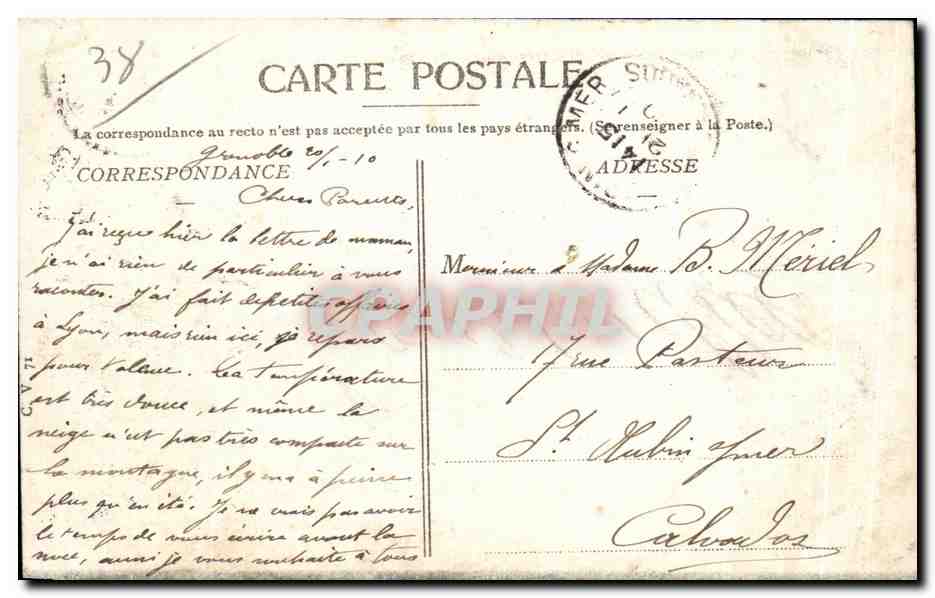 38
CARTE POSTALE
La correspondance au recto n'est pas acceptée par tous les pays étrangers. (Se renseigner à la Poste.)
Grenoble 20/1-10
CORRESPONDANCE
ADRESSE
Chers Parents,
J'ai reçue hier la lettre de maman,
je n'ai rien de particulier à vous
raconter. J'ai fait de petites affaires
à Lyon, mais rien ici, je repars
pour Valence. La température
est très douce, et même la
neige n'est pas très compacte sur
la montagne, il y en a à peine
plus qu'en été. Je ne vais pas avoir
le temps de vous écrire avant la
noce, aussi je vous souhaite à tous
Monsieur & Madame B. Mériel
17 rue Pasteur
St Aubin s/mer
Calvados
CPAPHIL
MER
1415
21